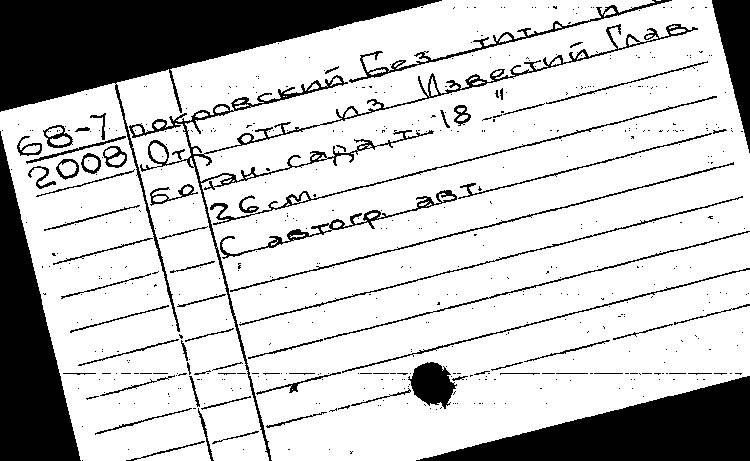 68-7 покровский. Без тит. л. и
2008 "Отд. отт. из Известий Глав.
ботан. сада, т. 18"
26 см.
С автогр. авт.